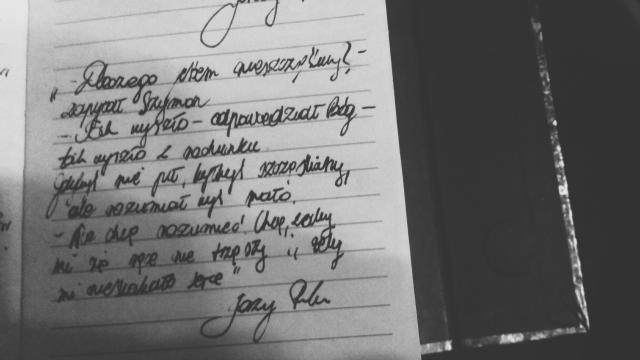 „- Dlaczego jestem nieszczęśliwy? -
zapytał Szymon
- Tak wyszło - odpowiedział Bóg -
tak wyszło z rachunku.
Gdybyś nie pił, byłbyś szczęśliwy,
ale rozumiał byś mało.
- Nie chcę rozumieć! Chcę, żeby
mi się ręce nie trzęsły i żeby
mi nieskakało serce"
Jerzy Pilch